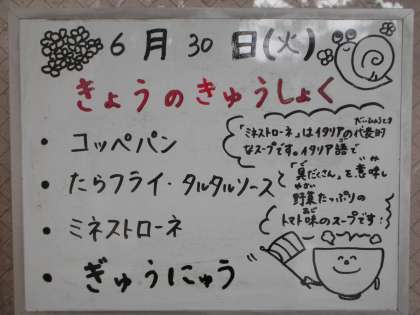 6月30日(火)
きょうのきゅうしょく
・コッペパン
・たらフライ・タルタルソース
・ミネストローネ
・ぎゅうにゅう
「ミネストローネ」はイタリアの代表的
なスープです。イタリア語で
「具だくさん」を意味し
野菜たっぷりの
トマト味のスープです!